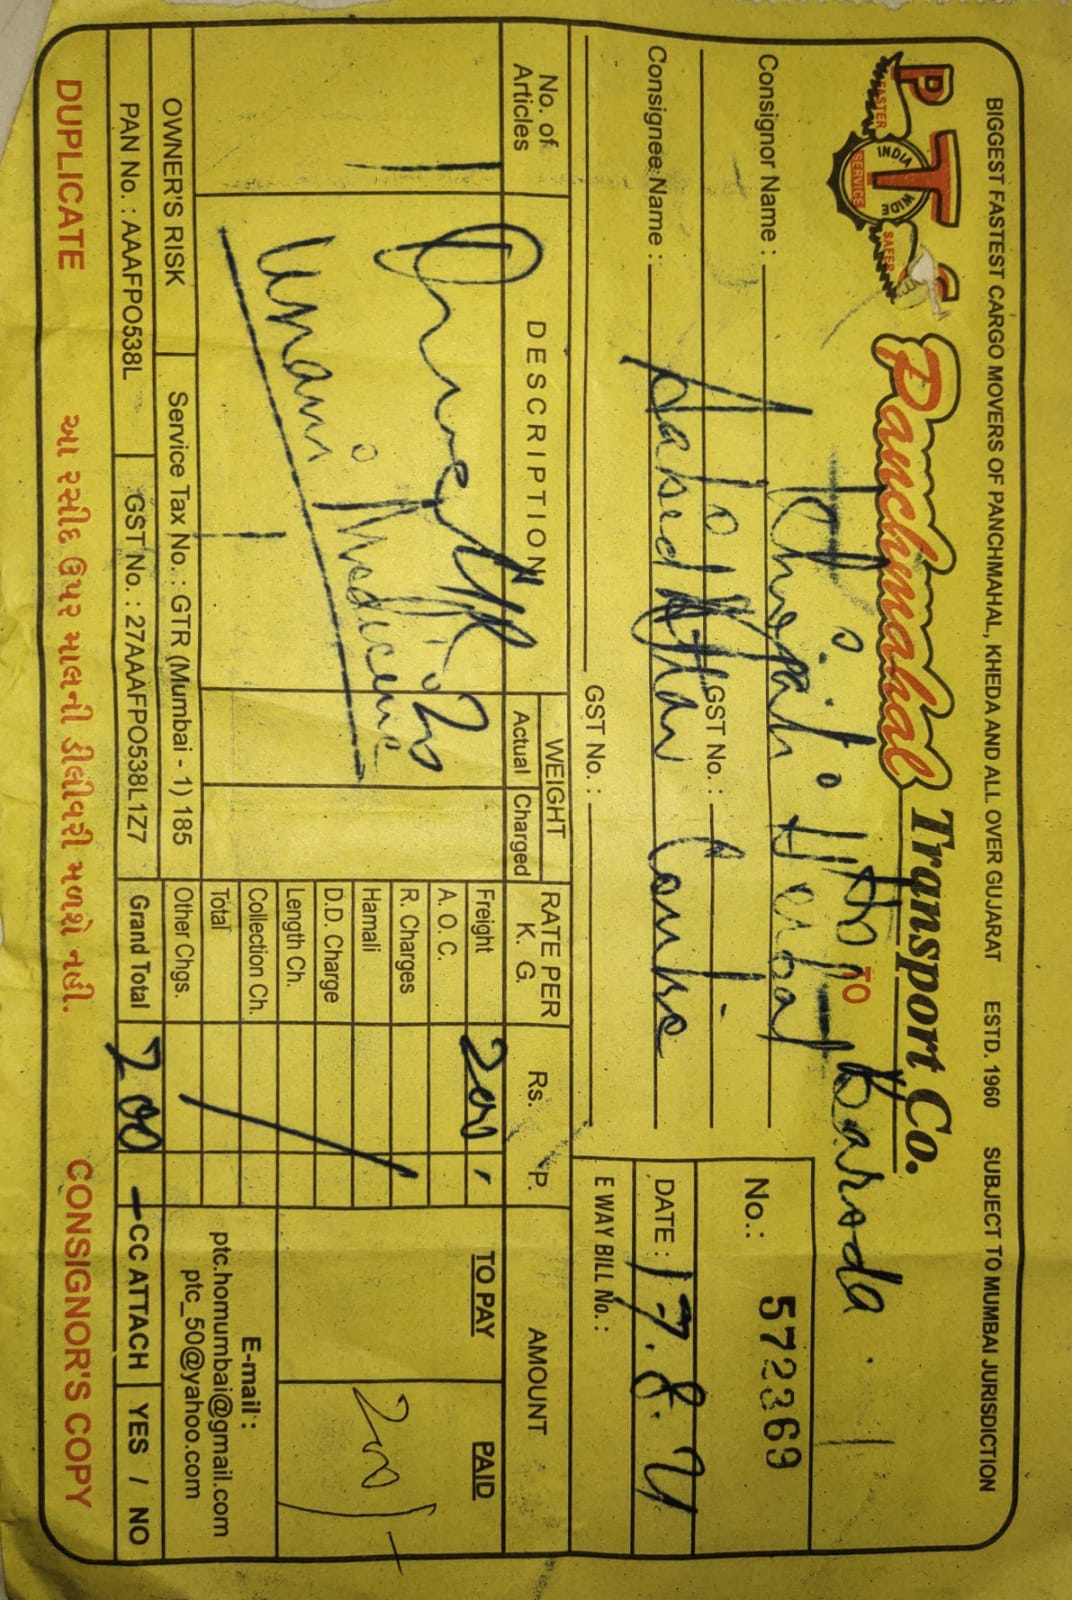 BIGGEST FASTEST CARGO MOVERS OF PANCHMAHAL, KHEDA AND ALL OVER GUJARAT ESTD. 1960 SUBJECT TO MUMBAI JURISDICTION
PTC
FASTER INDIA WIDE SERVICE SAFER
Panchmahal Transport Co.
TO Baroda
No.: 572369
Consignor Name: Herbal
GST No.:
DATE: 17.8.21
Consignee Name: Sabid Attar
GST No.:
E WAY BILL No.:
No. of Articles
DESCRIPTION
WEIGHT
Actual Charged
RATE PER K. G.
Rs. P.
AMOUNT
1
Unani Medicine
Freight 200
TO PAY PAID
A. O. C.
R. Charges
200/-
Hamali
D.D. Charge
Length Ch.
Collection Ch.
E-mail:
Total
ptc.homumbai@gmail.com
OWNER'S RISK Service Tax No.: GTR (Mumbai - 1) 185 Other Chgs.
ptc_50@yahoo.com
PAN No.: AAAFPO538L GST No.: 27AAAFPO538L1Z7 Grand Total 200 CC ATTACH YES / NO
DUPLICATE આ રસીદ ઉપર માલની ડીલીવરી મળશે નહી. CONSIGNOR'S COPY